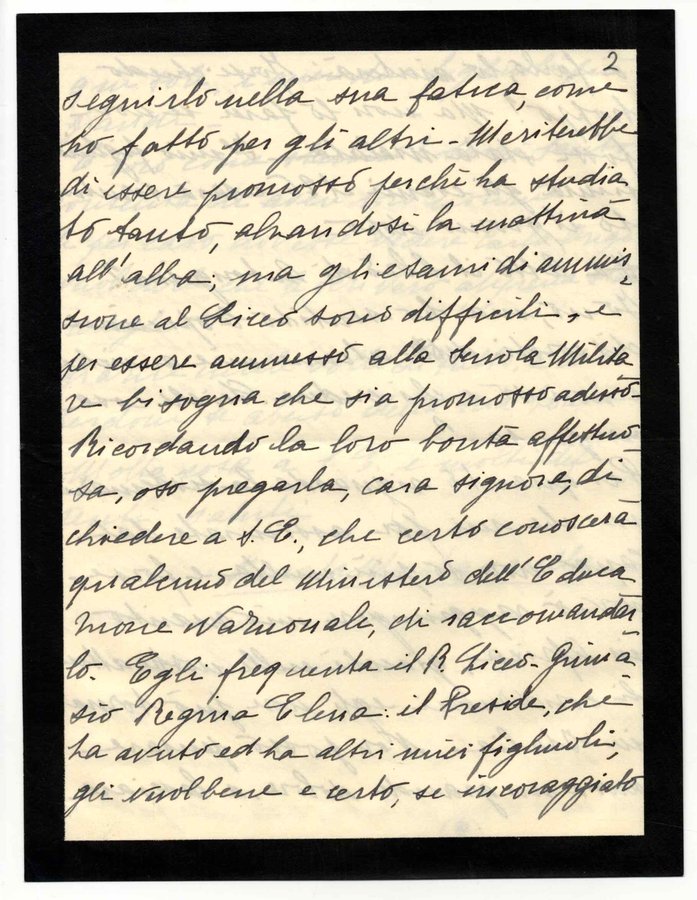 2
seguirlo nella sua fatica, come
ho fatto per gli altri - Meriterebbe
di essere promosso perchè ha studia
to tanto, alvandosi la mattina
all'alba; ma gli esami di ammis,
sione al Liceo sono difficili, e
per essere ammesso alla Scuola Milita
re bisogna che sia promosso adesso -
Ricordando la loro bontà affettuo
sa, oso pregarla, cara signora, di
chiedere a S. E., che certo conoscerà
qualcuno del Ministero dell'Educa
zione Nazionale, di raccomandar
lo. Egli frequenta il R. Liceo - Ginna
sio Regina Elena: il Preside, che
ha avuto ed ha altri miei figliuoli,
gli vuol bene e certo, se incoraggiato